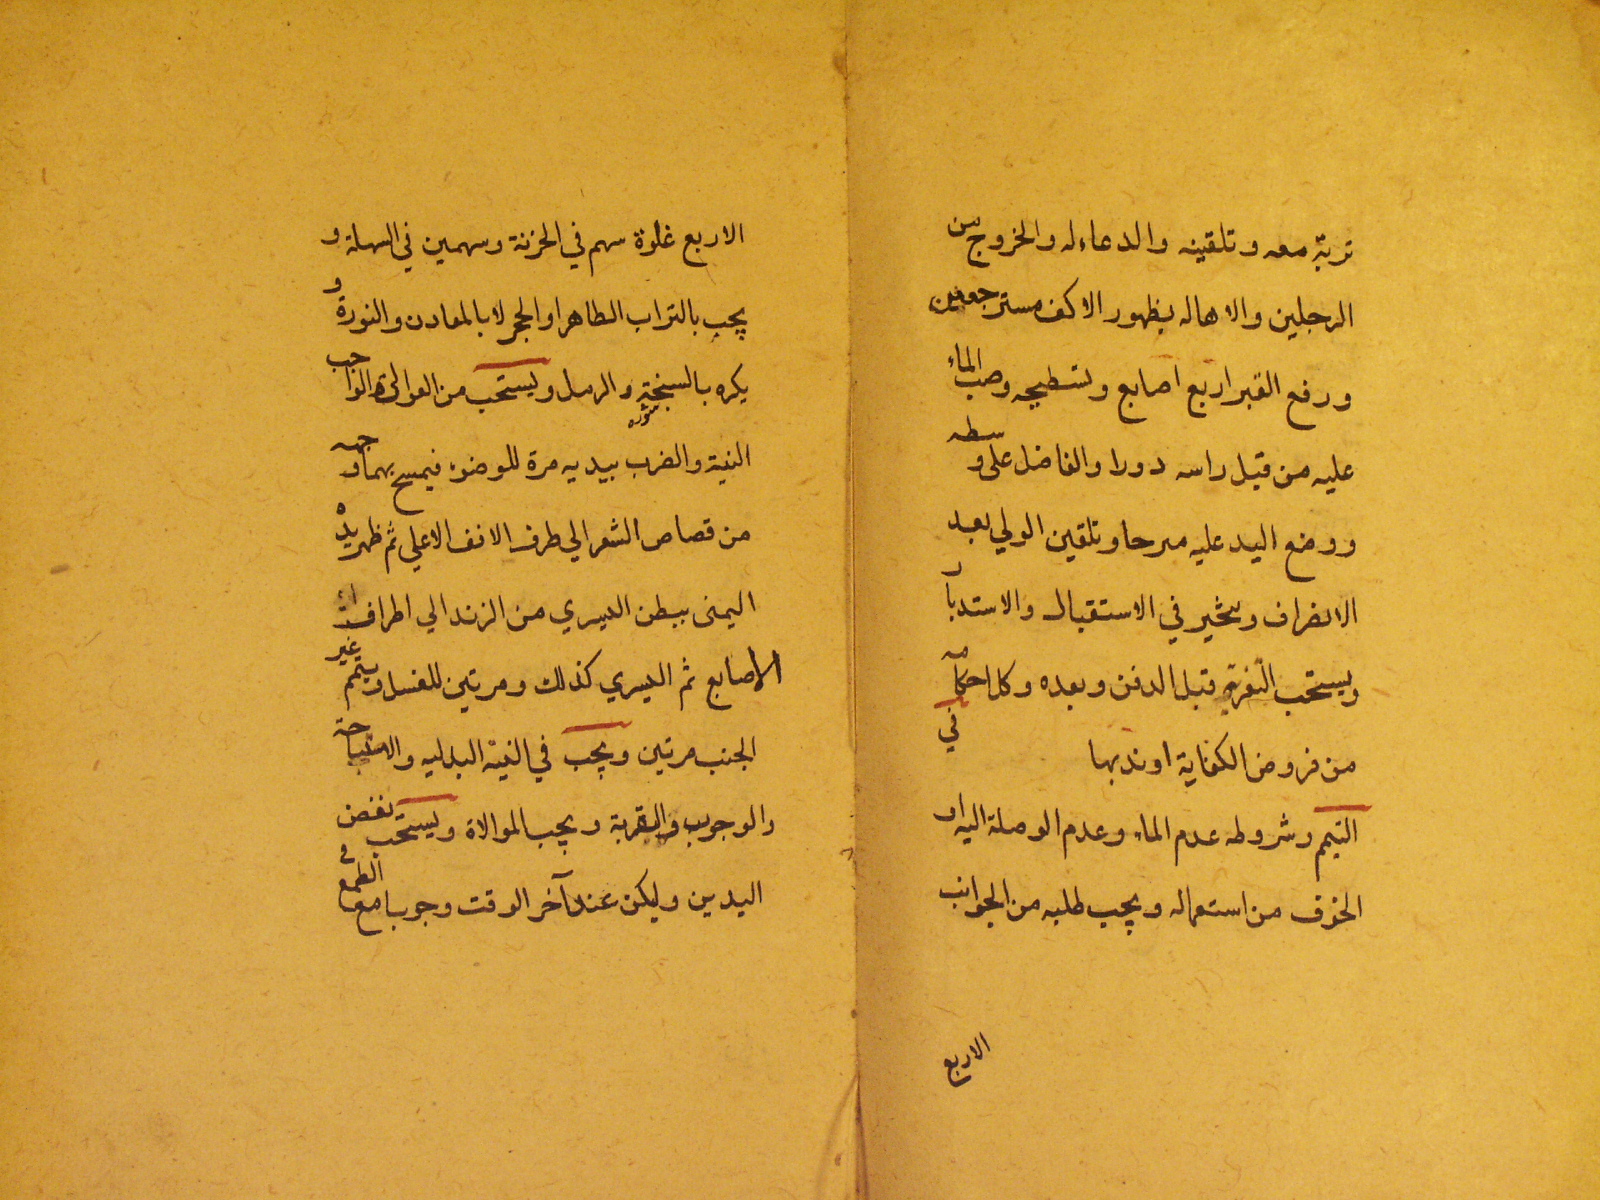 تربة معه وتلقينه والدعاء له والخروج من
الرجلين والاهالة بظهور الاكف مسترجعين
ورفع القبر اربع اصابع وتسطيحه وصب الماء
عليه من قبل راسه دورا والفاضل على وسطه
ووضع اليد عليه مترحما وتلقين الولي بعد
الانصراف ويتخير في الاستقبال والاستدبار
ويستحب التعزية قبل الدفن وبعده وكل احكامه
من فروض الكفاية او ندبها في
التيمم وشروطه عدم الماء وعدم الوصلة اليه او
الخوف من استعماله ويجب طلبه من الجوانب
الاربع
الاربع غلوة سهم في الحزنة وسهمين في السهلة و
يجب بالتراب الطاهر او الحجر لا بالمعادن والنورة و
يكره بالسبخة والرمل ويستحب من العوالي والواجب
النية والضرب بيديه مرة للوضوء فيمسح بهما وجهه
من قصاص الشعر الي طرف الانف الاعلي ثم ظهر يده
اليمنى ببطن اليسري من الزند الي اطراف
الاصابع ثم اليسري كذلك ومرتين للغسل ويتمم غير
الجنب مرتين ويجب في النية البدلية والاستباحة
والوجوب والقربة ويجب الموالاة ويستحب نفض
اليدين وليكن عند آخر الوقت وجوبا مع الطمع في